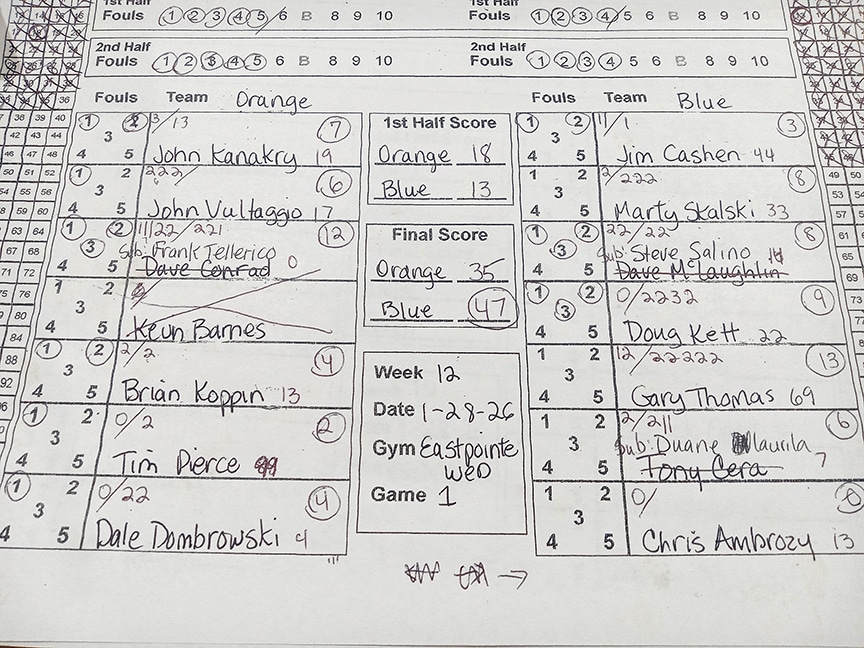 1st Half
Fouls 1 2 3 4 5 / 6 B 8 9 10
1st Half
Fouls 1 2 3 4 / 5 6 B 8 9 10
2nd Half
Fouls 1 2 3 4 5 6 B 8 9 10
2nd Half
Fouls 1 2 3 4 5 6 B 8 9 10
Fouls Team Orange
1 2 3 4 5
3/13 7
John Kanakry 19
1 2 3 4 5
222/ 6
John Vultaggio 17
1 2 3 4 5
1122/221 12
Sub: Frank Tellerico
Dave Conrad 0
1 2 3 4 5
Keun Barnes
1 2 3 4 5
2/2 4
Brian Koppin 13
1 2 3 4 5
0/2 2
Tim Pierce 99
1 2 3 4 5
0/22 4
Dale Dombrowski 4
1st Half Score
Orange 18
Blue 13
Final Score
Orange 35
Blue 47
Week 12
Date 1-28-26
Gym Eastpointe
WED
Game 1
Fouls Team Blue
1 2 3 4 5
11/1 3
Jim Cashen 44
1 2 3 4 5
2/222 8
Marty Skalski 33
1 2 3 4 5
22/22 8
Sub: Steve Salino 14
Dave McLaughlin
1 2 3 4 5
0/2232 9
Doug Kett 22
1 2 3 4 5
12/22222 13
Gary Thomas 69
1 2 3 4 5
2/211 6
Sub: Duane Maurila
Tony Cera 7
1 2 3 4 5
0/ 0
Chris Ambrozy 13